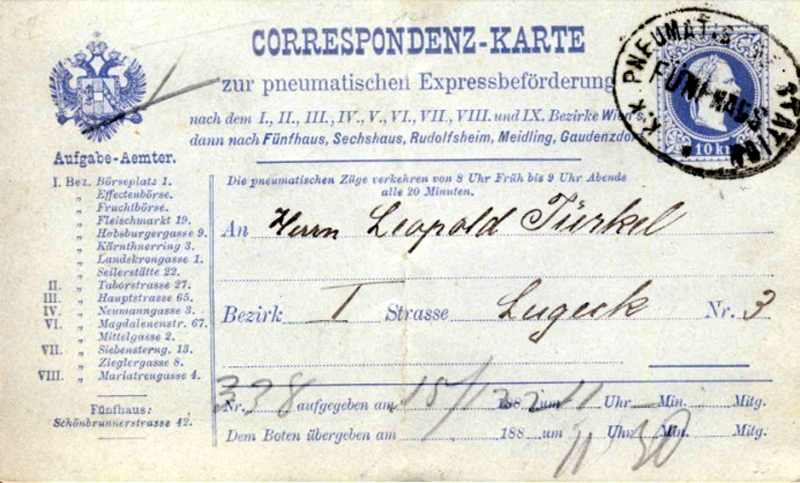 CORRESPONDENZ-KARTE
zur pneumatischen Expressbeförderung
nach dem I., II., III., IV., V., VI., VII., VIII. und IX. Bezirke Wien's,
dann nach Fünfhaus, Sechshaus, Rudolfsheim, Meidling, Gaudenzdorf
K.K. PNEUMATISCHE STATION
FÜNFHAUS
10 kr
Aufgabe-Aemter.
I. Bez. Börseplatz 1.
„ Effectenbörse.
„ Fruchtbörse.
„ Fleischmarkt 19.
„ Habsburgergasse 9.
„ Kärnthnerring 3.
„ Landskrongasse 1.
„ Seilerstätte 22.
II. „ Taborstrasse 27.
III. „ Hauptstrasse 65.
IV. „ Neumanngasse 3.
VI. „ Magdalenenstr. 67.
„ Mittelgasse 2.
VII. „ Siebensterng. 13.
„ Zieglergasse 8.
VIII. „ Mariatreugasse 4.
Fünfhaus:
Schönbrunnerstrasse 42.
Die pneumatischen Züge verkehren von 8 Uhr Früh bis 9 Uhr Abends
alle 20 Minuten.
An Herrn Leopold Türkel
Bezirk I Strasse Lugeck Nr. 3
Nr. 338 aufgegeben am 15/ 188 um 11 Uhr Min. Mitg.
Dem Boten übergeben am 188 um 11 Uhr 30 Min. Mitg.